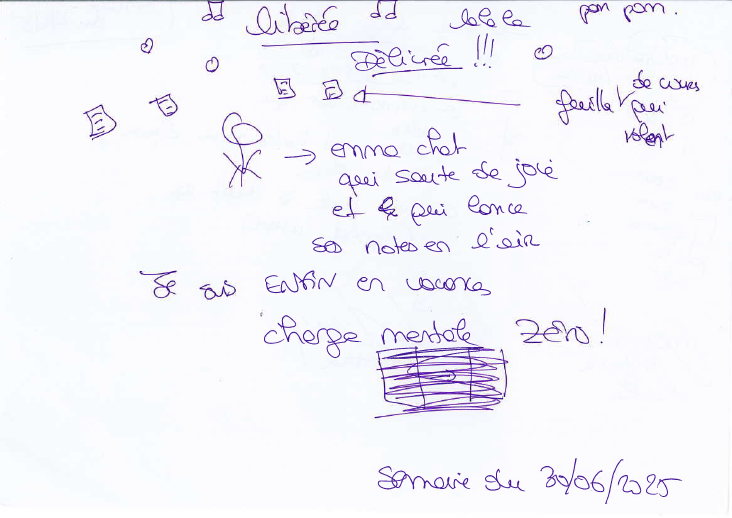 libérée lalala pom pom.
Délivrée !!!
feuille de cours qui volent
→ emma chat
qui saute de joie
et qui lance
ses notes en l'air
Je suis ENFIN en vacances
charge mentale zéro !
semaine du 30/06/2025